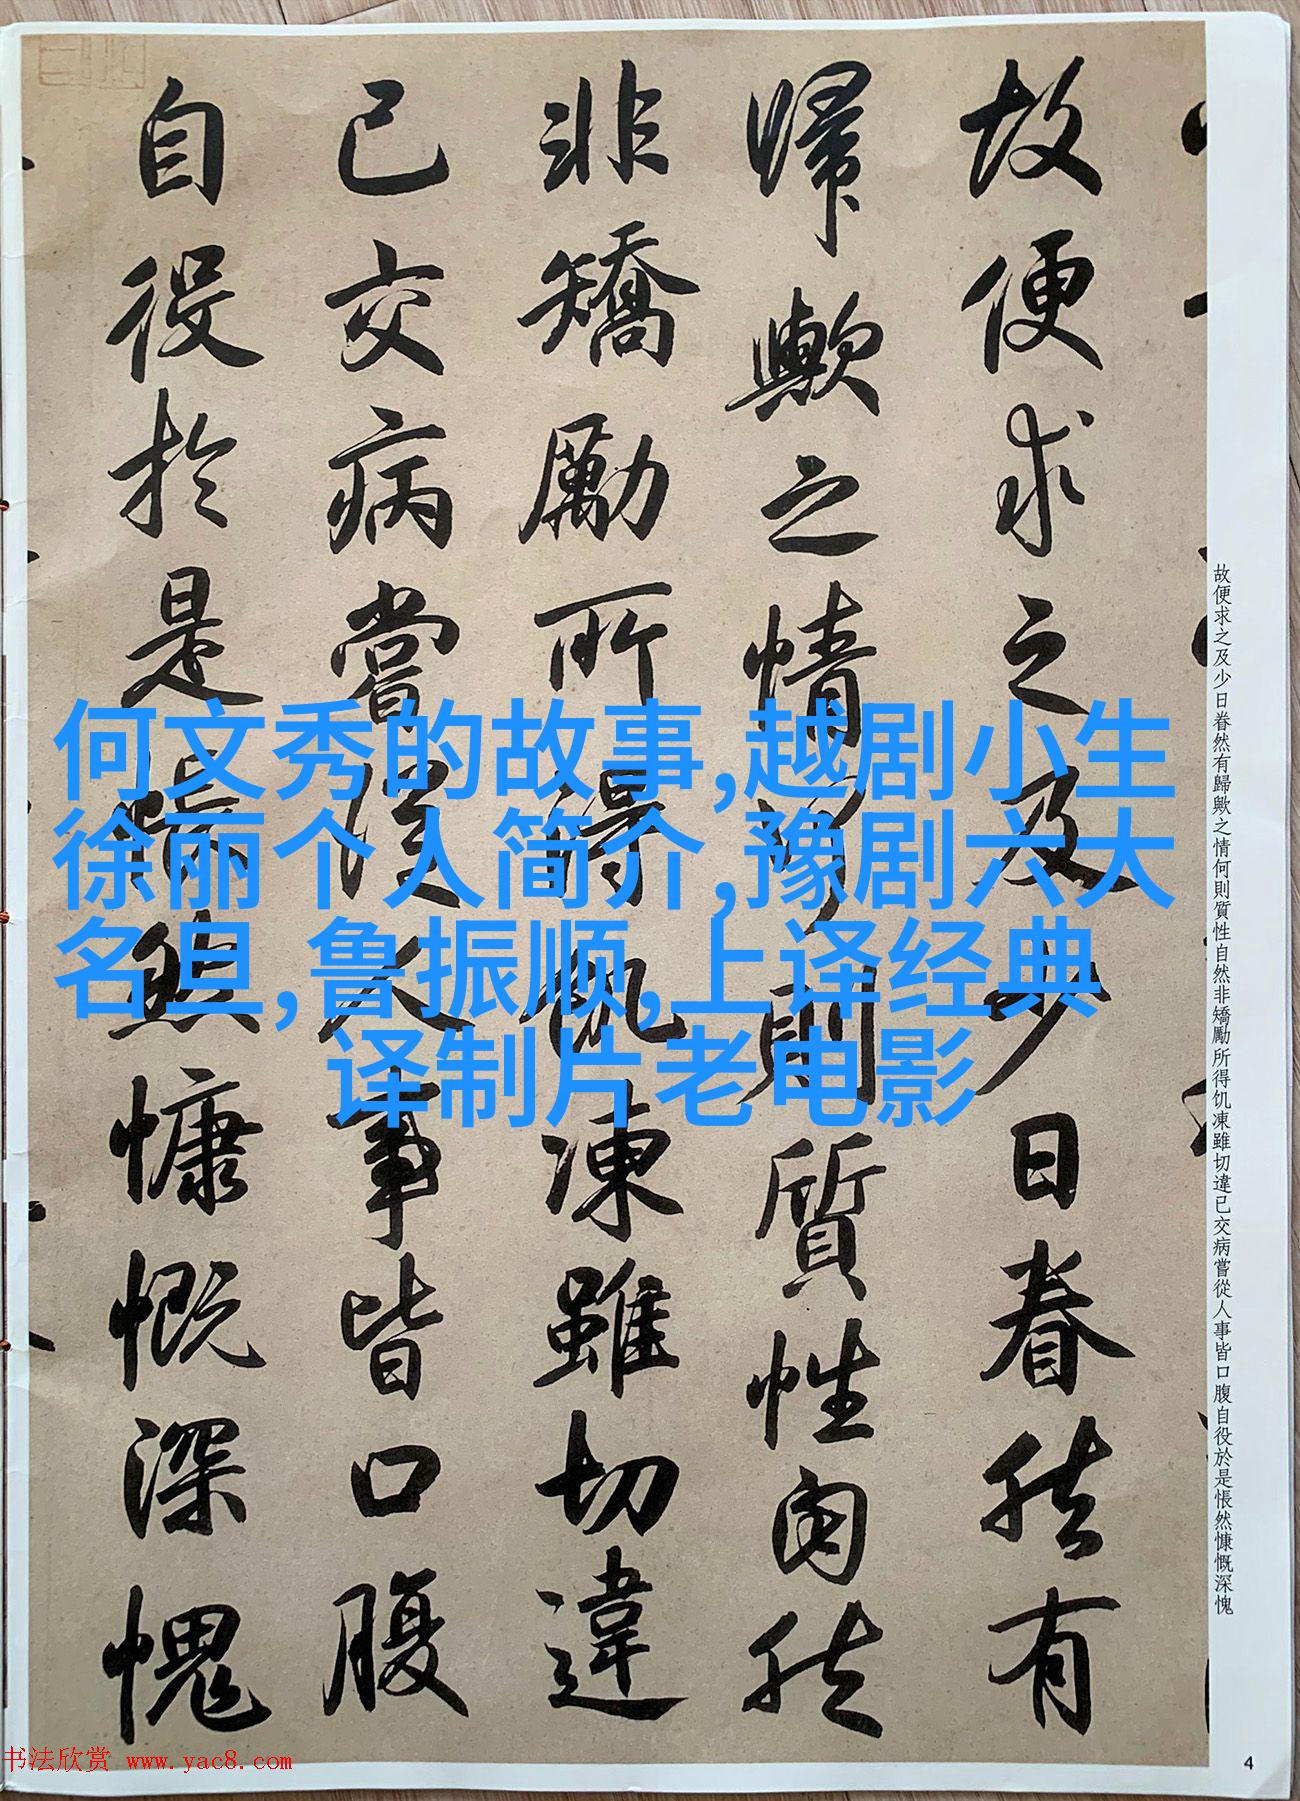 故便求之及少日眷然有
歸歟之情何則質性自然
非矯勵所得饥凍雖切違
已交病嘗從人事皆口腹
自役於是悵然慷慨深愧
故便求之及少日眷然有歸歟之情何則質性自然非矯勵所得饥凍雖切違已交病嘗從人事皆口腹自役於是悵然慷慨深愧
何文秀的故事,越剧小生
徐丽个人简介,豫剧六大
名旦,鲁振顺,上译经典
译制片老电影
书法欣赏 www.yac8.com
4